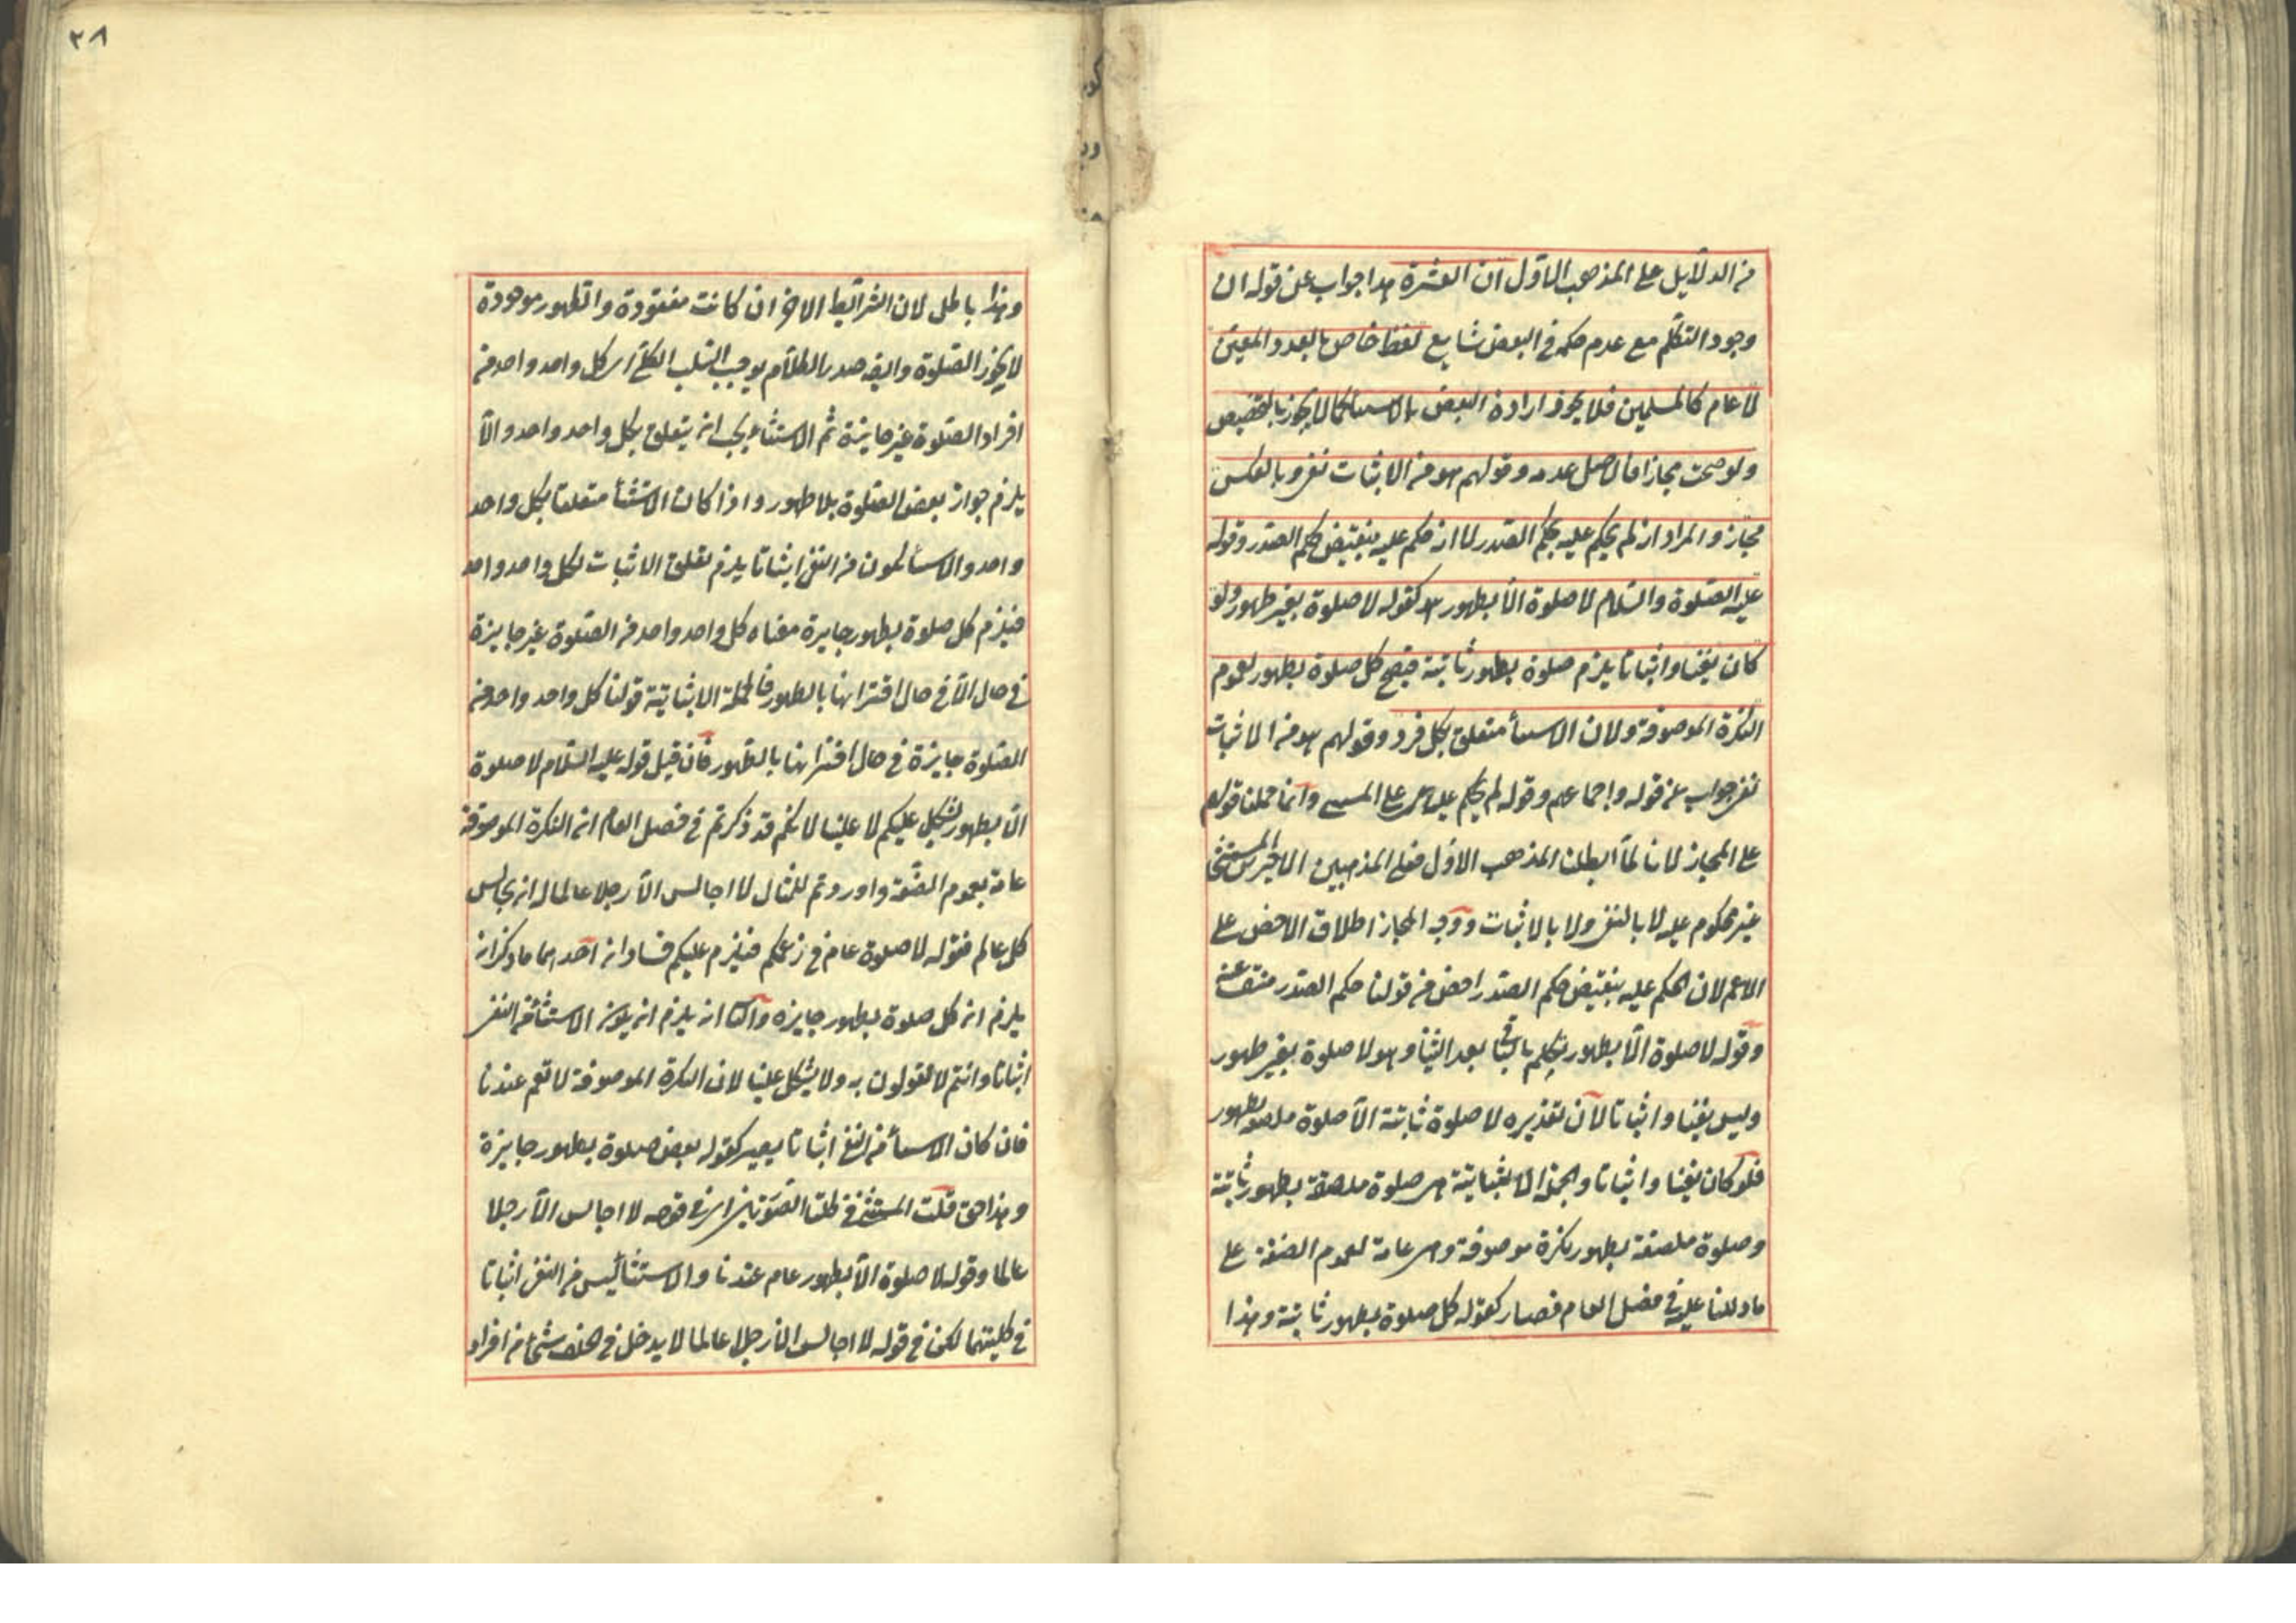 من الدلايل على المذهب الاول ان العشرة هذا جواب عن قوله ان
وجود التكلم مع عدم حكمه في البعض شايع لفظ خاص بالعدد المعين
لا عام كالمسلمين فلا يجوز ارادة البعض بالاستثنا كما لا يجوز بالتخصيص
ولو صحت مجازا فالاصل عدمه وقولهم هو من الاثبات نفي وبالعكس
مجاز والمراد انه لم يحكم عليه بحكم الصدر لا انه حكم عليه بنقيض حكم الصدر وقوله
عليه الصلوة والسلام لا صلوة الا بطهور هو كقوله لا صلوة بغير طهور ولو
كان نفيا واثباتا يلزم صلوة بطهور ثابتة فيصح كل صلوة بطهور لعموم
النكرة الموصوفة ولان الاستثنا متعلق بكل فرد وقولهم هو من الاثبات
نفي جواب عن قوله واجماعهم وقوله لم يحكم عليه اى على المستثنى وانما حملنا قولهم
على المجاز لانا لما ابطلنا المذهب الاول فعلى المذهبين الاخيرين المستثنى
غير محكوم عليه لا بالنفي ولا بالاثبات ووجه المجاز اطلاق الاخص على
الاعم لان الحكم عليه بنقيض حكم الصدر اخص من قولنا حكم الصدر منتف عنه
وقوله لا صلوة الا بطهور تكلم بالباقى بعد الثنيا وهو لا صلوة بغير طهور
وليس نفيا واثباتا لان تقديره لا صلوة ثابتة الا صلوة ملصقة بطهور
فلو كان نفيا واثباتا والجملة الاثباتية هى صلوة ملصقة بطهور ثابتة
وصلوة ملصقة بطهور نكرة موصوفة وهى عامة لعموم الصفة على
ما دللنا عليه في فصل العام فصار كقوله كل صلوة بطهور ثابتة وهذا
٣٨
وهذا باطل لان الشرائط الاخر ان كانت مفقودة والطهور موجودة
لا يجوز الصلوة وايضا صدر الكلام يوجب السلب الكلى اى كل واحد واحد من
افراد الصلوة غير جايزة ثم الاستثناء يجب ان يتعلق بكل واحد واحد والا
يلزم جواز بعض الصلوة بلا طهور واذا كان الاستثنأ متعلقا بكل واحد
واحد والاستثنا يكون من النفي اثباتا يلزم تعلق الاثبات بكل واحد واحد
فيلزم كل صلوة بطهور جايزة معناه كل واحد واحد من الصلوة غير جايزة
في حال الا في حال اقترانها بالطهور فالجملة الاثباتية قولنا كل واحد واحد من
الصلوة جايزة في حال اقترانها بالطهور فان قيل قوله عليه السلام لا صلوة
الا بطهور يشكل عليكم لا علينا لانكم قد ذكرتم في فصل العام ان النكرة الموصوفة
عامة بعموم الصفة واوردتم للمثال لا اجالس الا رجلا عالما له ان يجالس
كل عالم فقوله لا صلوة عام في زعمكم فيلزم عليكم فسادان احدهما ما ذكر انه
يلزم ان كل صلوة بطهور جايزه والثا انه يلزم ان يكون الاستثنأ من النفي
اثباتا وانتم لا تقولون به ولا يشكل علينا لان النكرة الموصوفة لا تعم عندنا
فان كان الاستثنأ من النفي اثباتا يصير كقوله بعض صلوة بطهور جايزة
وهذا حق قلت المستثنى في كلتا الصورتين اى في قوله لا اجالس الا رجلا
عالما وقوله لا صلوة الا بطهور عام عندنا والاستثنأ ليس من النفي اثباتا
في كليتهما لكن في قوله لا اجالس الا رجلا عالما لا يدخل في الحلف شئ من افراد